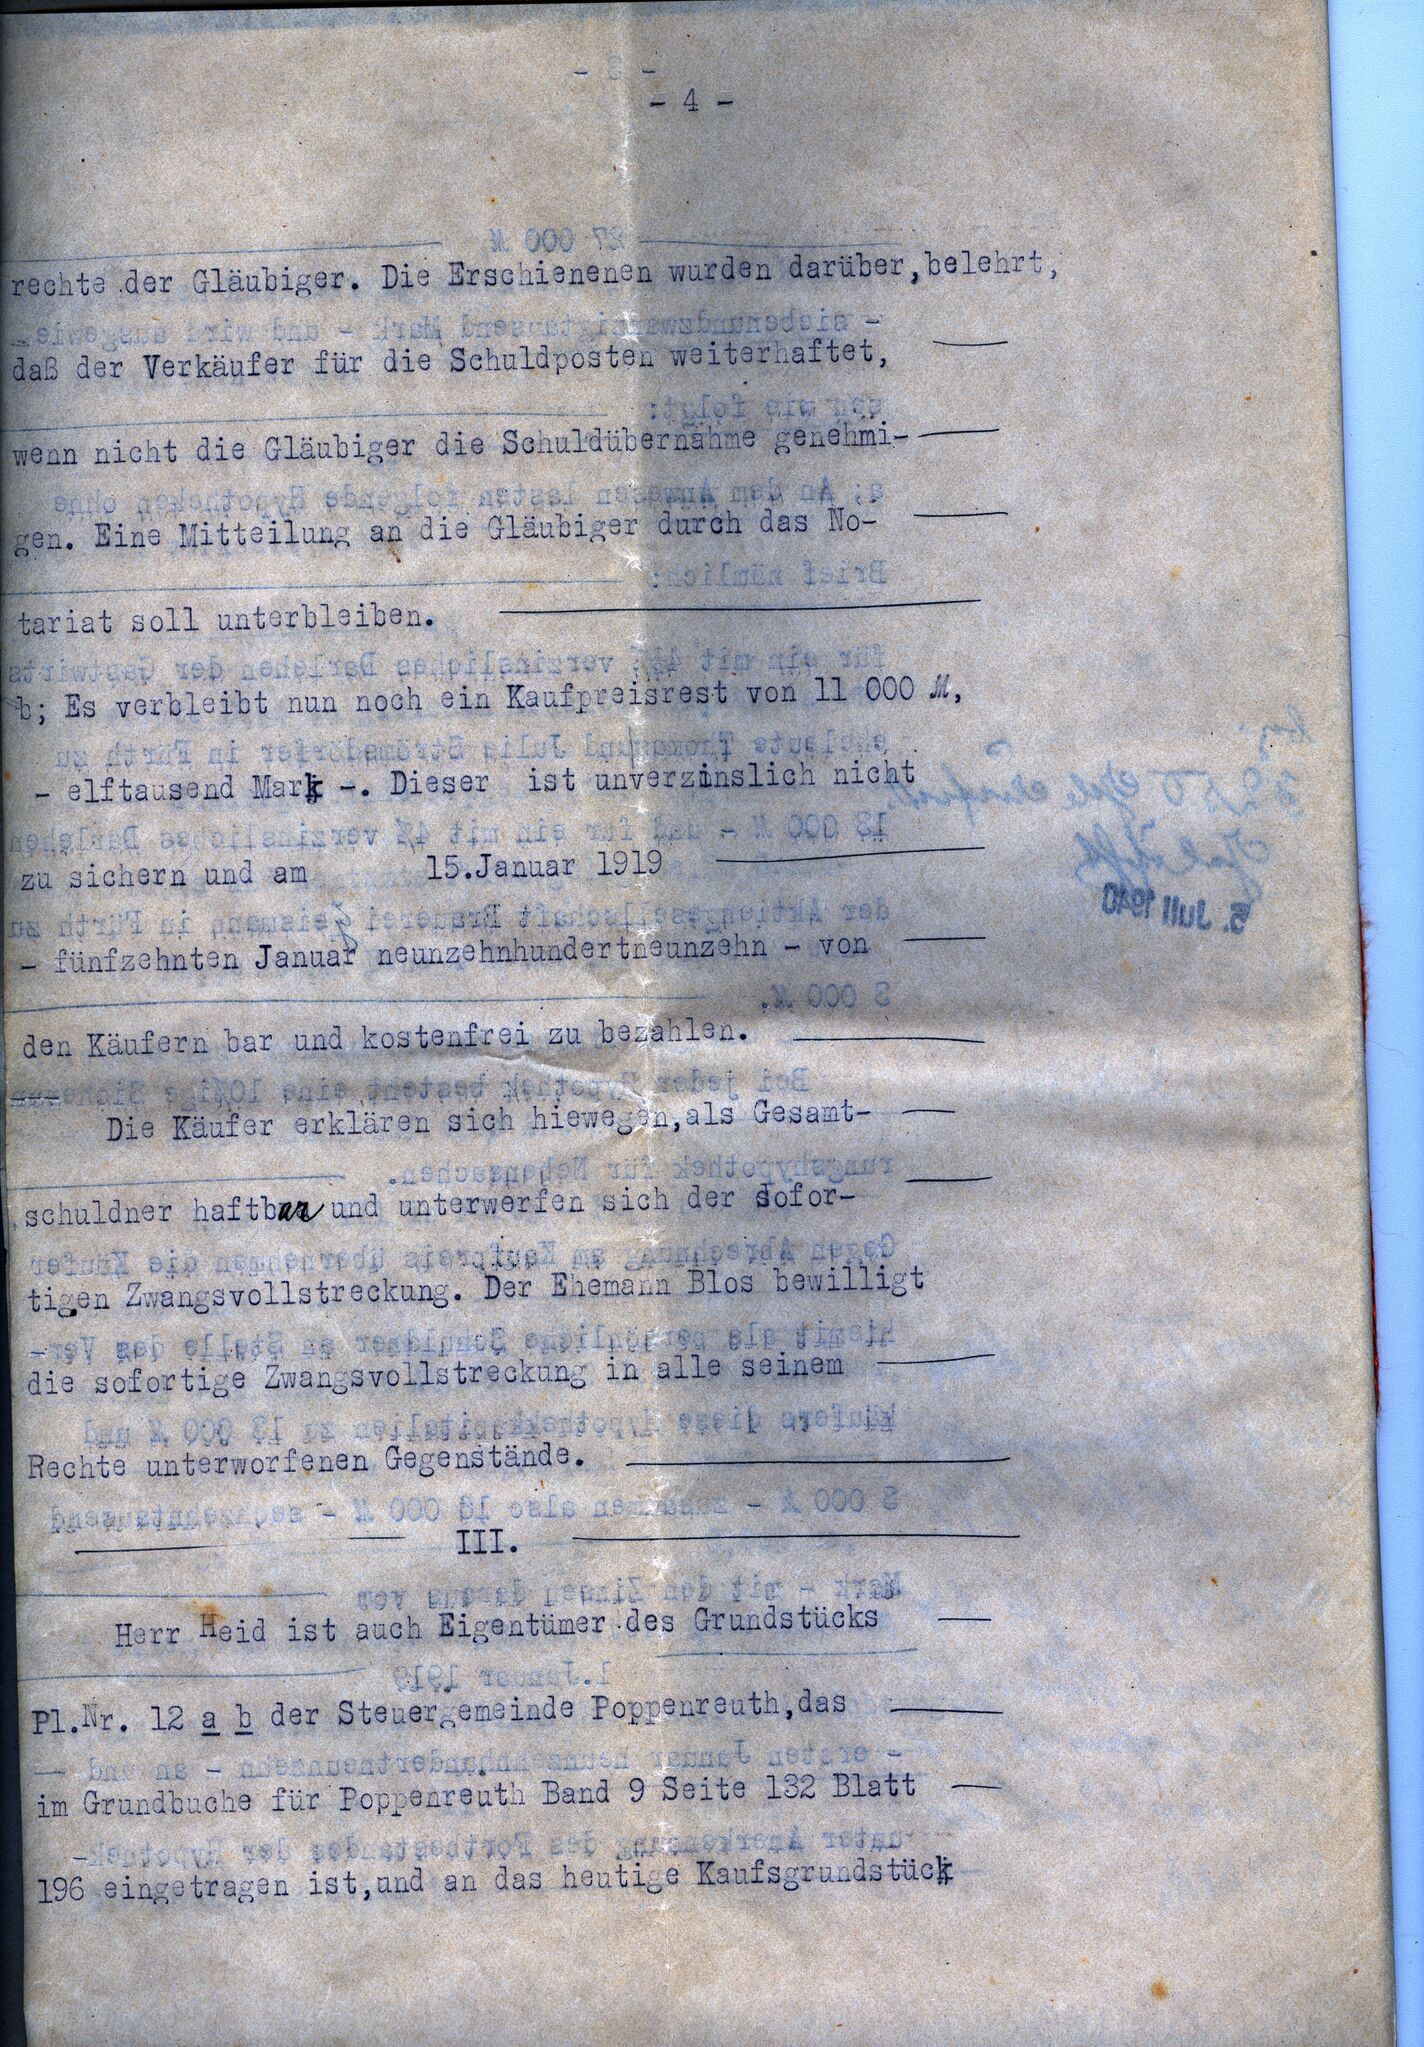 - 4 -
rechte der Gläubiger. Die Erschienenen wurden darüber, belehrt,
daß der Verkäufer für die Schuldposten weiterhaftet,
wenn nicht die Gläubiger die Schuldübernahme genehmi-
gen. Eine Mitteilung an die Gläubiger durch das No-
tariat soll unterbleiben.
b; Es verbleibt nun noch ein Kaufpreisrest von 11 000 M,
- elftausend Mark -. Dieser ist unverzinslich nicht
zu sichern und am 15. Januar 1919
- fünfzehnten Januar neunzehnhundertneunzehn - von
den Käufern bar und kostenfrei zu bezahlen.
Die Käufer erklären sich hiewegen, als Gesamt-
schuldner haftbar und unterwerfen sich der sofor-
tigen Zwangsvollstreckung. Der Ehemann Blos bewilligt
die sofortige Zwangsvollstreckung in alle seinem
Rechte unterworfenen Gegenstände.
III.
Herr Heid ist auch Eigentümer des Grundstücks
Pl.Nr. 12 a b der Steuergemeinde Poppenreuth, das
im Grundbuche für Poppenreuth Band 9 Seite 132 Blatt
196 eingetragen ist, und an das heutige Kaufsgrundstück
5. Juli 1940